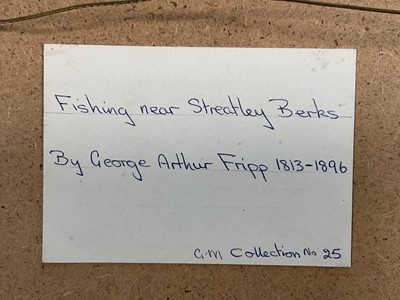 Fishing near Streatley Berks
By George Arthur Fripp 1813-1896
G.M Collection No 25